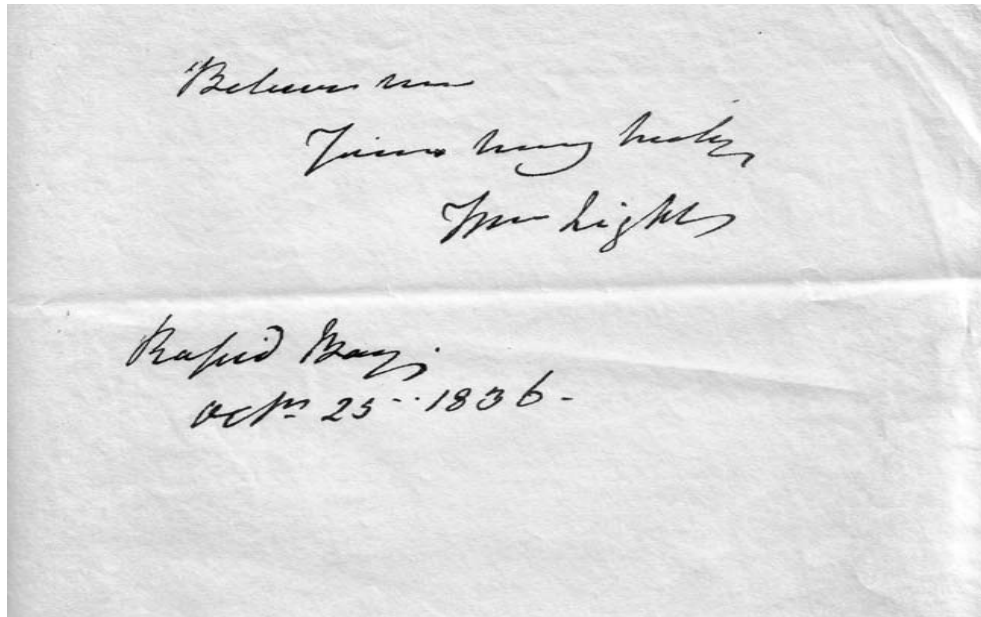 Believe me
Yours very truly
Wm Light
Rapid Bay.
Octr 25 .. 1836 -